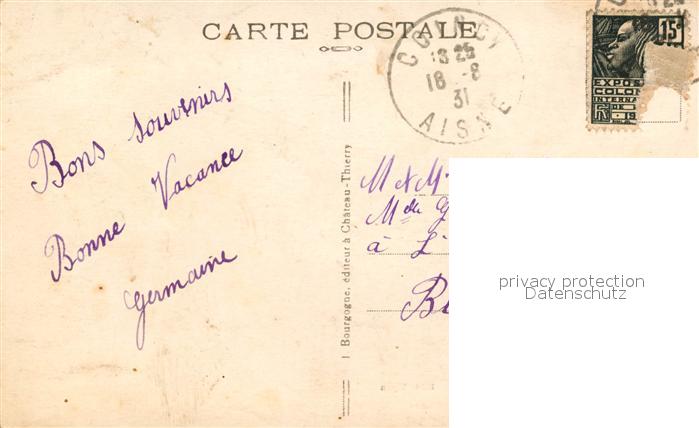 CARTE POSTALE
COINCY
18 25
18 -8
31
AISNE
15c
EXPOS
COLON
INTERNA
DE
19
Bons souvenirs
Bonne Vacance
Germaine
1 Bourgogne, éditeur à Château-Thierry
M et M
Melle G
à L'
privacy protection
Datenschutz